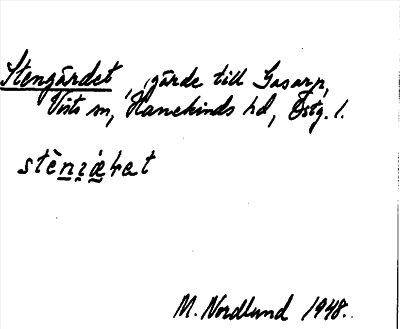 Stengärdet, gärde till Gasarp,
Vists sn, Hanekinds hd, Östg. l.
M. Nordlund 1948.